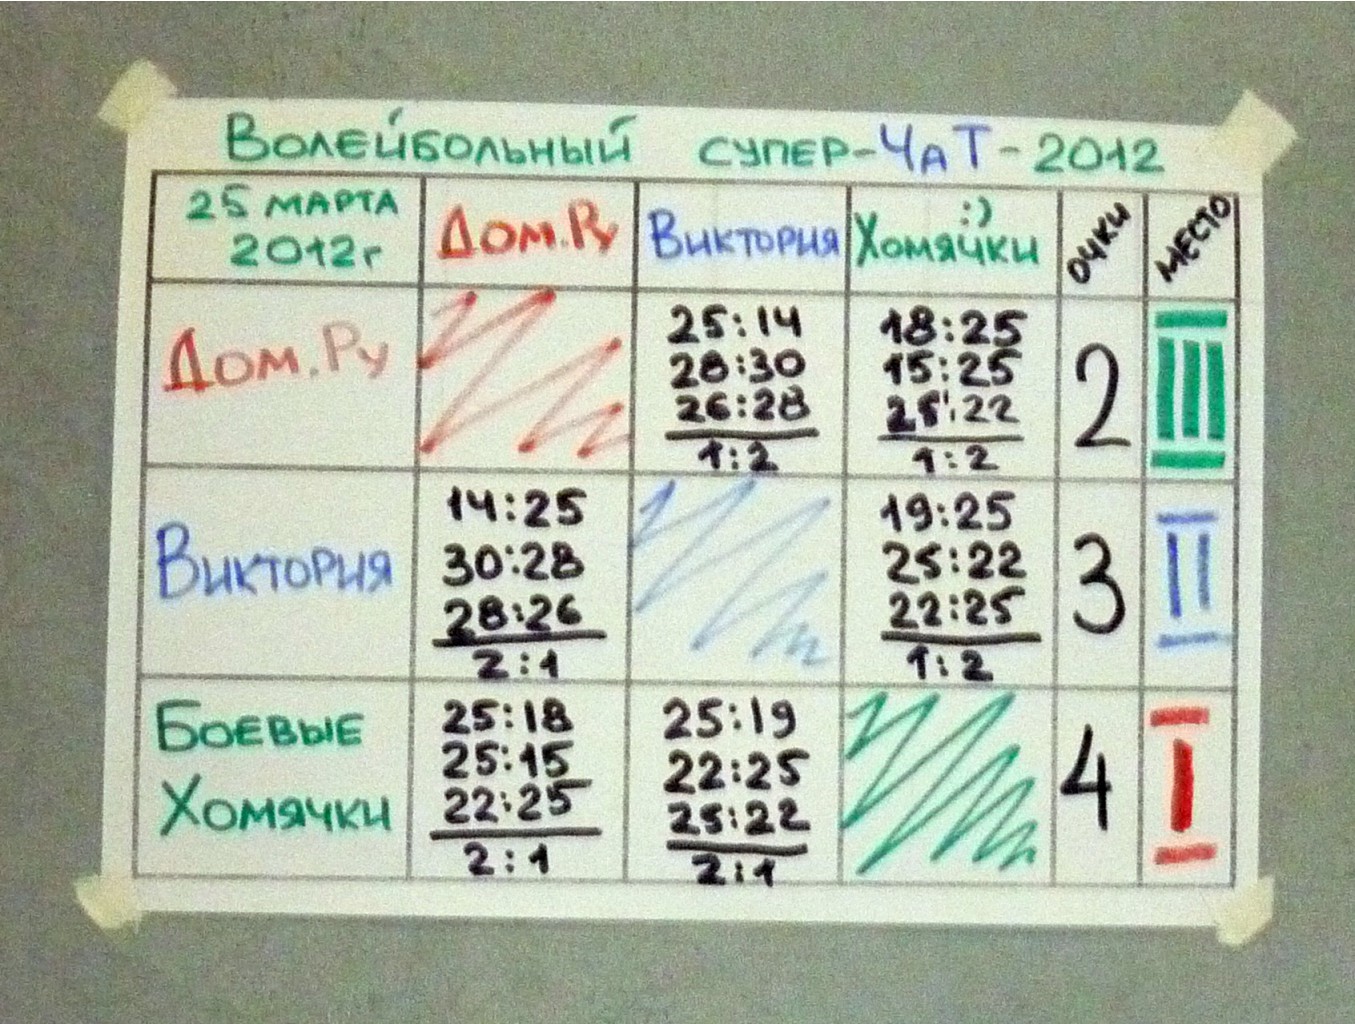 Волейбольный супер-ЧАТ-2012
25 марта
2012г
Дом.Ру
Виктория
:)
Хомячки
очки
место
Дом.Ру
25:14
28:30
26:28
1:2
18:25
15:25
25:22
1:2
2
III
Виктория
14:25
30:28
28:26
2:1
19:25
25:22
22:25
1:2
3
II
Боевые
Хомячки
25:18
25:15
22:25
2:1
25:19
22:25
25:22
2:1
4
I